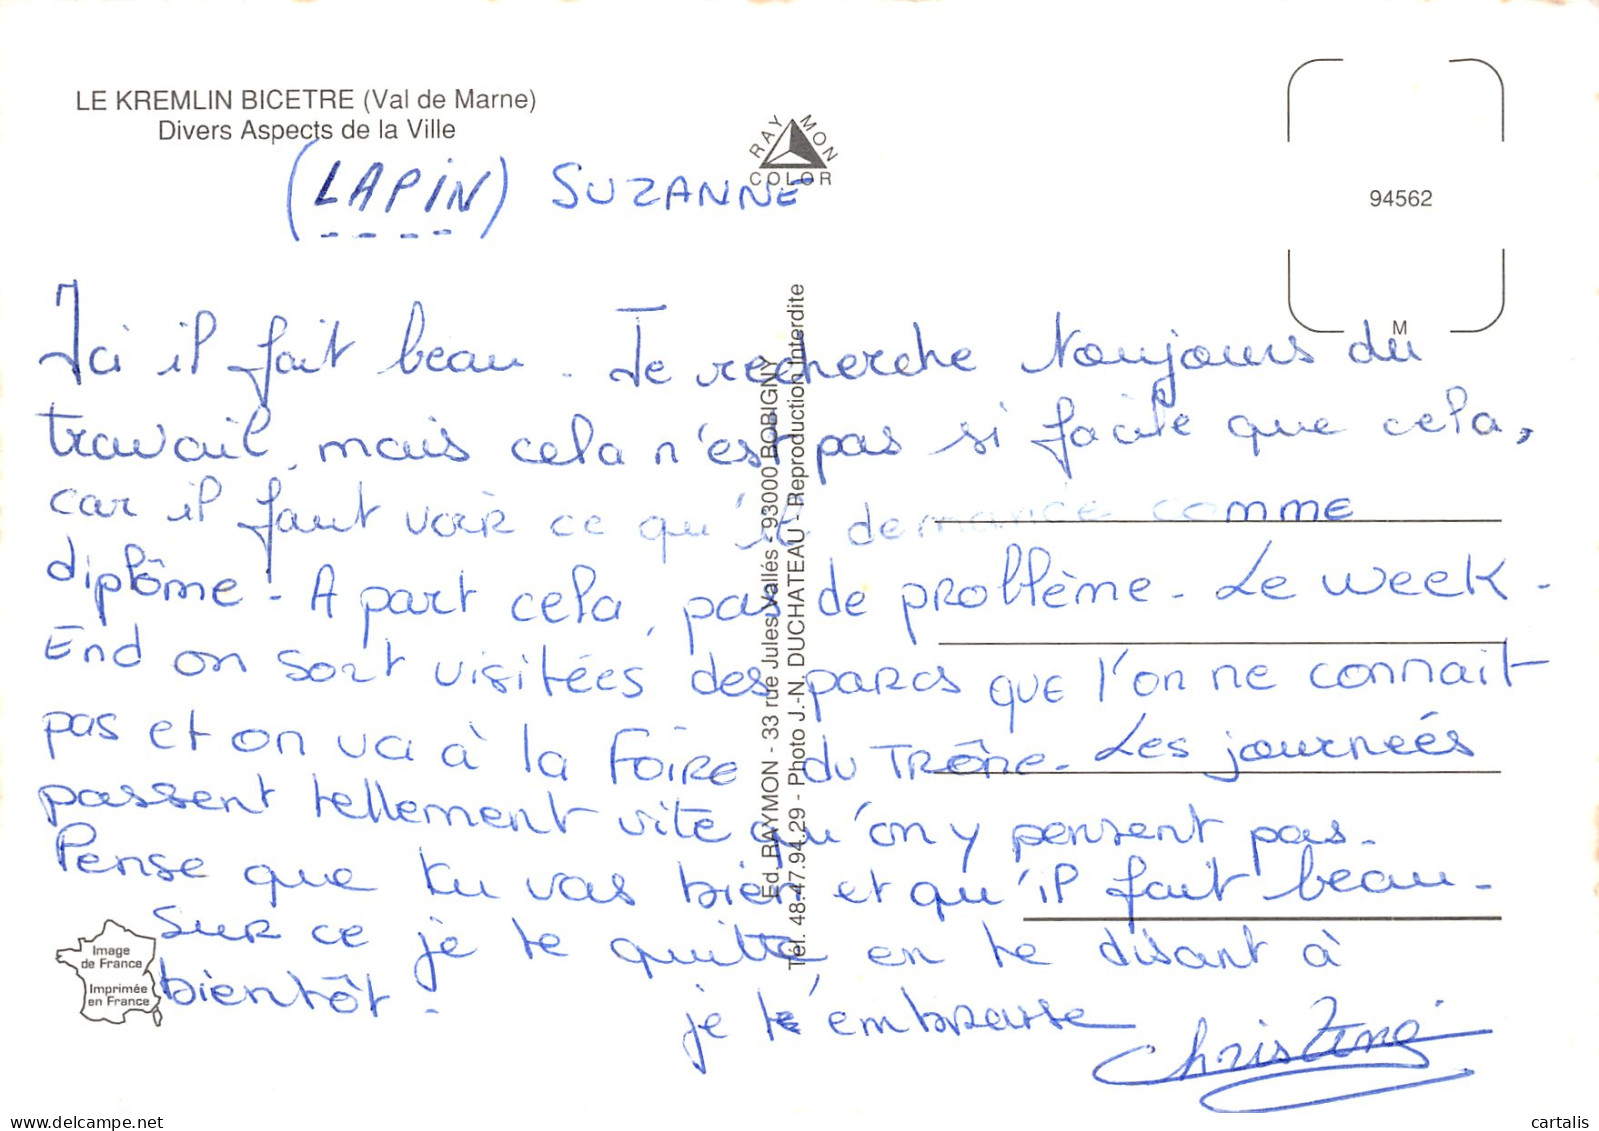 LE KREMLIN BICETRE (Val de Marne)
Divers Aspects de la Ville
RAYMON
COLOR
94562
M
(LAPIN) SUZANNE
Ici il fait beau. Je recherche toujours du
travail, mais cela n'est pas si facile que cela,
car il faut voir ce qu'il demande comme
diplôme. A part cela, pas de problème. Le week-
End on sort visitées des parcs que l'on ne connait
pas et on va à la Foire du Trône. Les journeés
passent tellement vite qu'on y pensent pas.
Pense que tu vas bien et qu'il fait beau.
Sur ce je te quitte en te disant à
bientôt.
je t'embrasse
Christine
Ed. RAYMON - 33 rue Jules Vallés - 93000 BOBIGNY
Tél. 48.47.94.29 - Photo J.-N. DUCHATEAU - Reproduction Interdite
Image
de France
Imprimée
en France
cartalis